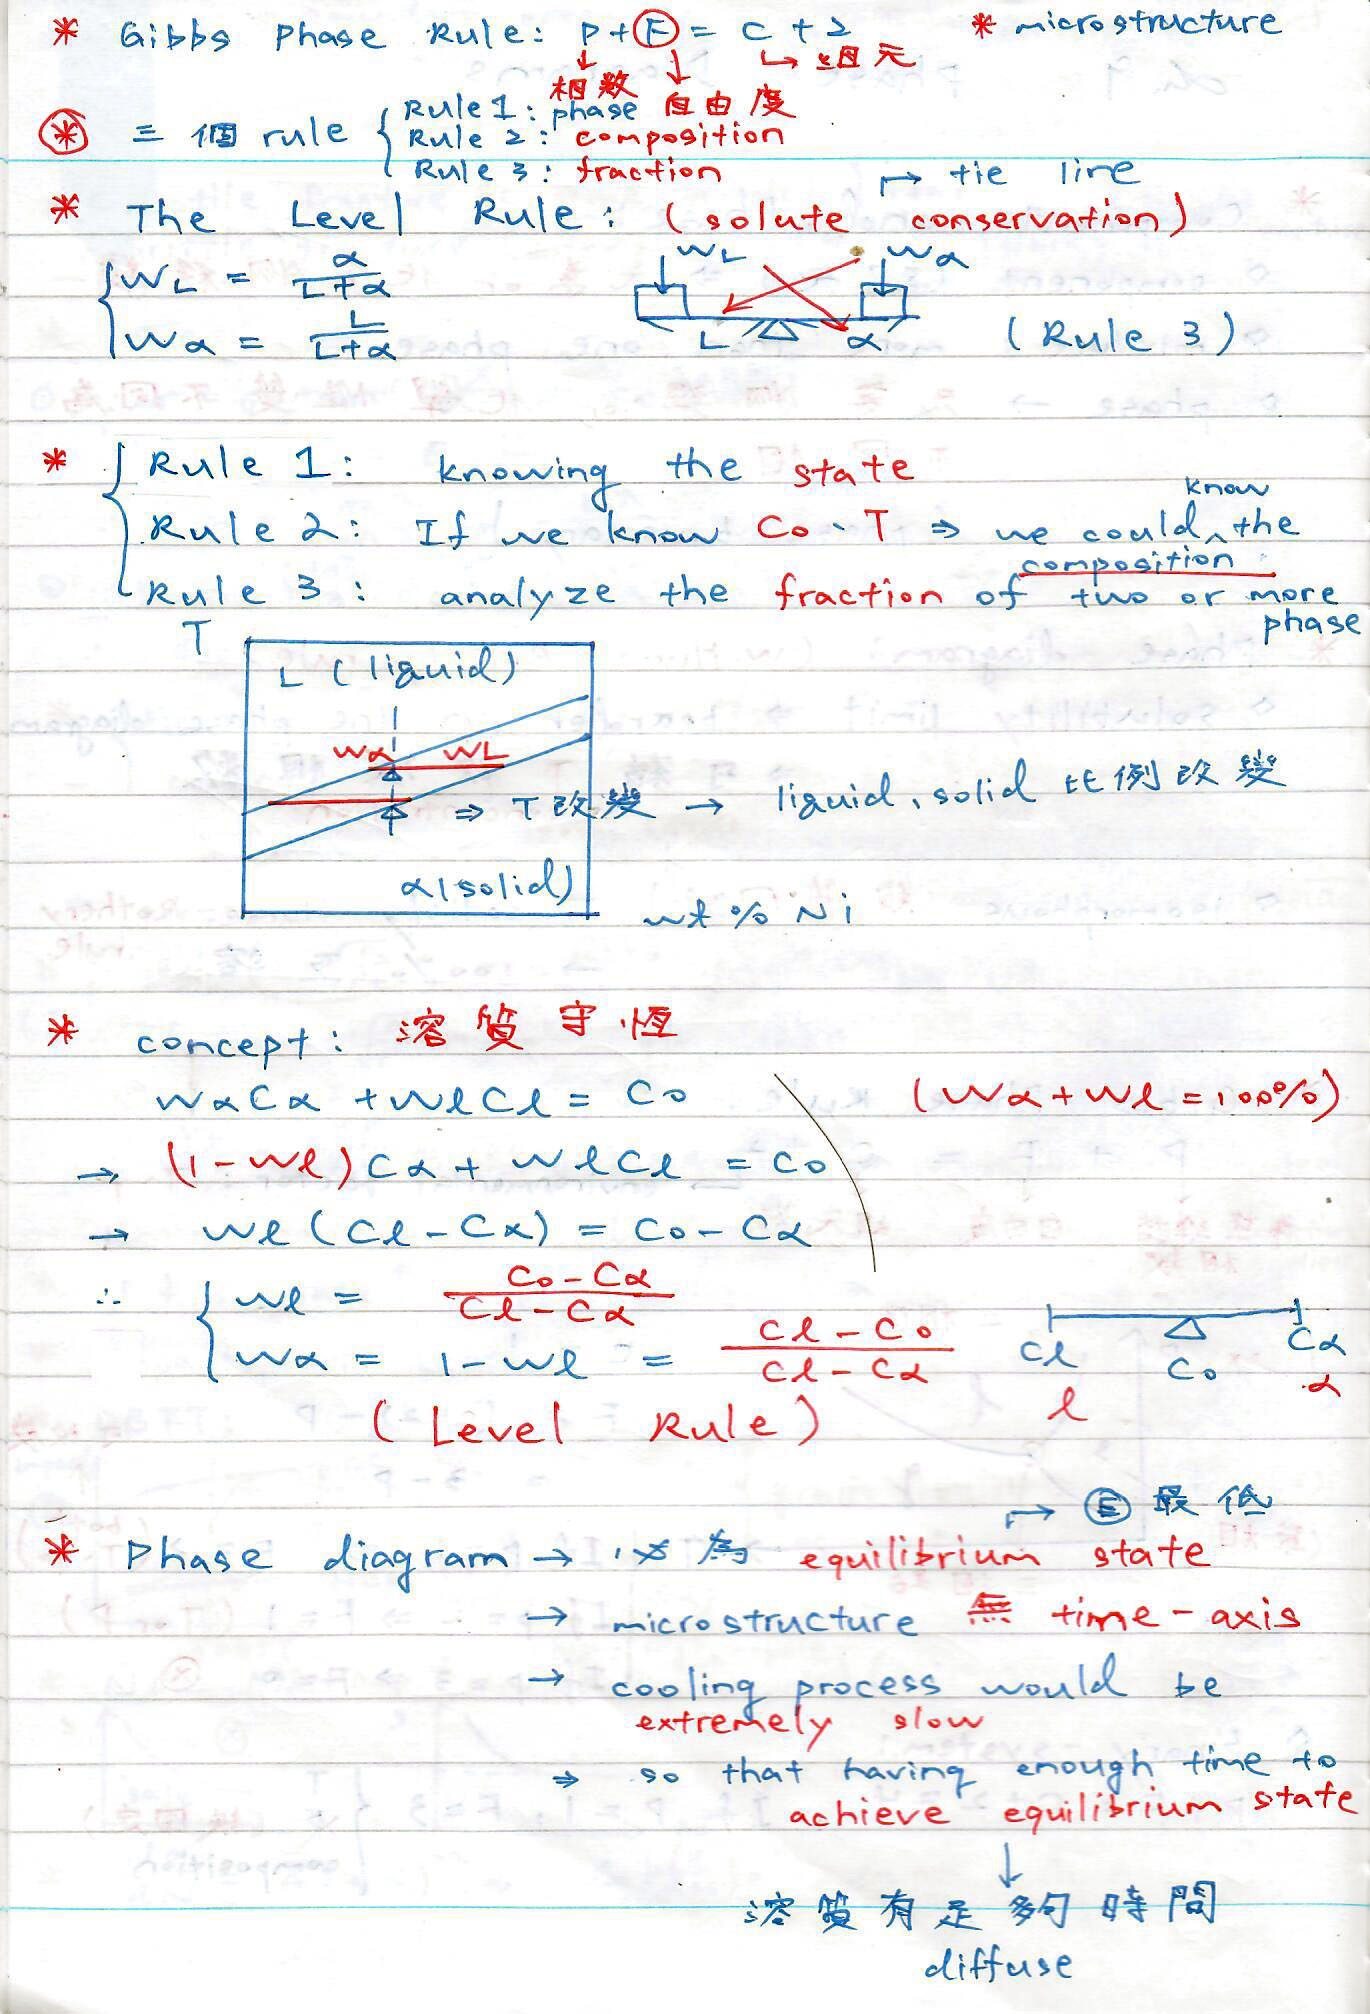 * Gibbs Phase Rule: P + F = C + 2 * microstructure
相數 自由度 組元
* 三個 rule { Rule 1: phase
Rule 2: composition
Rule 3: fraction
→ tie line
* The Level Rule: (solute conservation)
WL = α / L+α
Wα = L / L+α
WL Wα
L α (Rule 3)
* Rule 1: knowing the state
Rule 2: If we know Co、T ⇒ we could know the composition
Rule 3: analyze the fraction of two or more phase
T
L (liquid)
Wα WL
⇒ T改變 → liquid、solid 比例改變
α(solid)
wt% Ni
* concept: 溶質守恆
WαCα + WlCl = Co (Wα + Wl = 100%)
→ (1-Wl)Cα + WlCl = Co
→ Wl(Cl-Cα) = Co-Cα
∴ { Wl = Co-Cα / Cl-Cα
Wα = 1-Wl = Cl-Co / Cl-Cα
Cl Co Cα
l α
(Level Rule)
→ E 最低
* Phase diagram → 必為 equilibrium state
→ microstructure 無 time-axis
→ cooling process would be extremely slow
⇒ so that having enough time to achieve equilibrium state
↓
溶質有足夠時間
diffuse